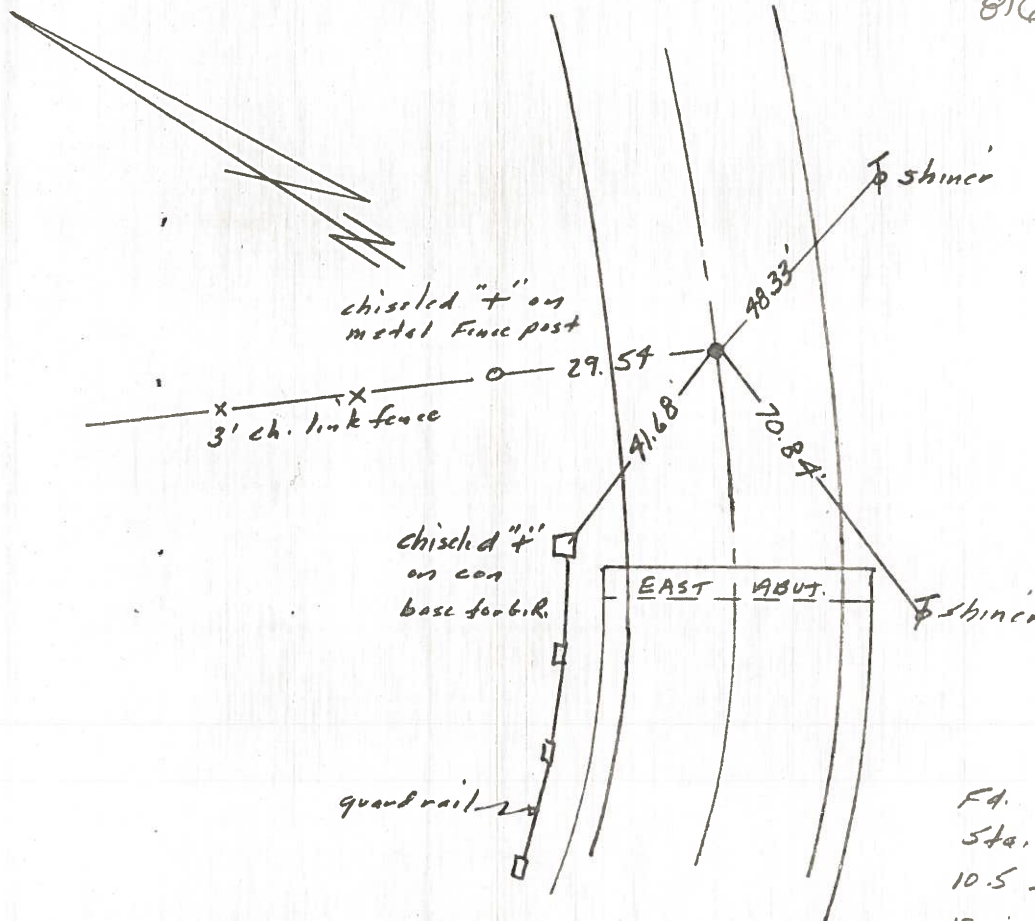 816
shiner
48.33'
chiseled "+" on
metal Fence post
29.54
3' ch. link fence
41.68
70.84'
chiseled "+"
on con
base for G.R.
EAST ABUT.
shiner
guard rail
Fd.
Sta.
10.5